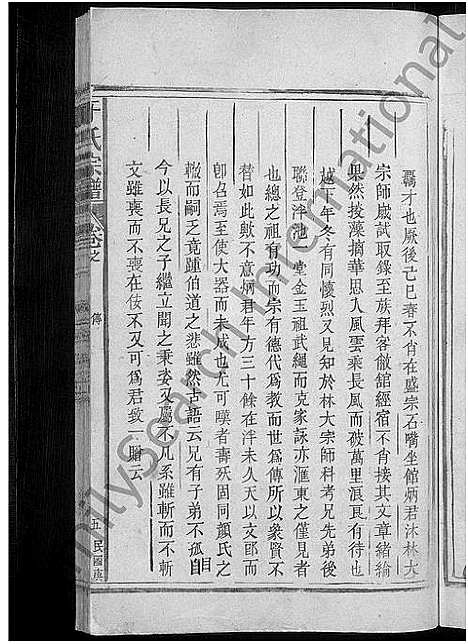 覊才也厥後己巳春不肖在盛宗石嘴坐館炳君沐林大
宗師嵗試取錄至族拜客徹館經宿不肖接其文章緒綸
果然掞藻摛華思入風雲乘長風而破萬里浪良有待也
越下年冬有同懷烈又見知於林大宗師科考兄先弟後
聯登泮池一堂金玉祖武繩而克家詠亦滙東之僅見者
也總之祖有功而宗有德代爲教而世爲傳所以象賢不
替如此歟不意炳君年方三十餘在泮未久天以文郎而
卽召焉至使大器而未成也尤可嘆者壽殀固同顏氏之
轍而嗣乏竟踵伯道之悲雖然古語云兄有子弟不孤自
今以長兄之子繼立聞之秉姿又屬不凡系雖斬而不斬
文雖喪而不喪在僕不又可爲君致一賻云
于氏宗譜
卷之
傳
五
民國
FamilySearch International